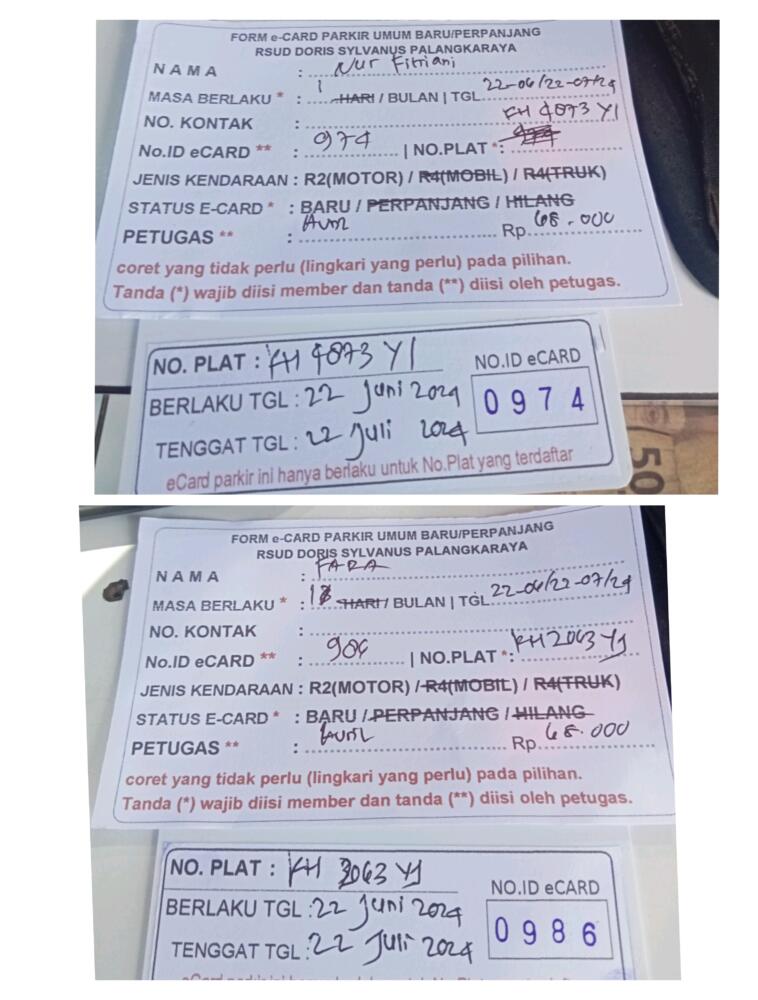 FORM e-CARD PARKIR UMUM BARU/PERPANJANG
RSUD DORIS SYLVANUS PALANGKARAYA
NAMA : Nur Fitriani
MASA BERLAKU * : 1 HARI / BULAN | TGL 22-06/22-07/24
NO. KONTAK :
No.ID eCARD ** : 974 | NO.PLAT *: KH 4073 YI
JENIS KENDARAAN : R2(MOTOR) / R4(MOBIL) / R4(TRUK)
STATUS E-CARD * : BARU / PERPANJANG / HILANG
PETUGAS ** : Rp 68.000
coret yang tidak perlu (lingkari yang perlu) pada pilihan.
Tanda (*) wajib diisi member dan tanda (**) diisi oleh petugas.
NO. PLAT : KH 4073 YI
NO.ID eCARD
BERLAKU TGL : 22 Juni 2024
0974
TENGGAT TGL : 22 Juli 2024
eCard parkir ini hanya berlaku untuk No.Plat yang terdaftar
50
FORM e-CARD PARKIR UMUM BARU/PERPANJANG
RSUD DORIS SYLVANUS PALANGKARAYA
NAMA : FARA
MASA BERLAKU * : 1 HARI / BULAN | TGL 22-06/22-07/24
NO. KONTAK :
No.ID eCARD ** : 986 | NO.PLAT *: KH 2063 YJ
JENIS KENDARAAN : R2(MOTOR) / R4(MOBIL) / R4(TRUK)
STATUS E-CARD * : BARU / PERPANJANG / HILANG
PETUGAS ** : Rp 68.000
coret yang tidak perlu (lingkari yang perlu) pada pilihan.
Tanda (*) wajib diisi member dan tanda (**) diisi oleh petugas.
NO. PLAT : KH 2063 YJ
NO.ID eCARD
BERLAKU TGL : 22 Juni 2024
0986
TENGGAT TGL : 22 Juli 2024